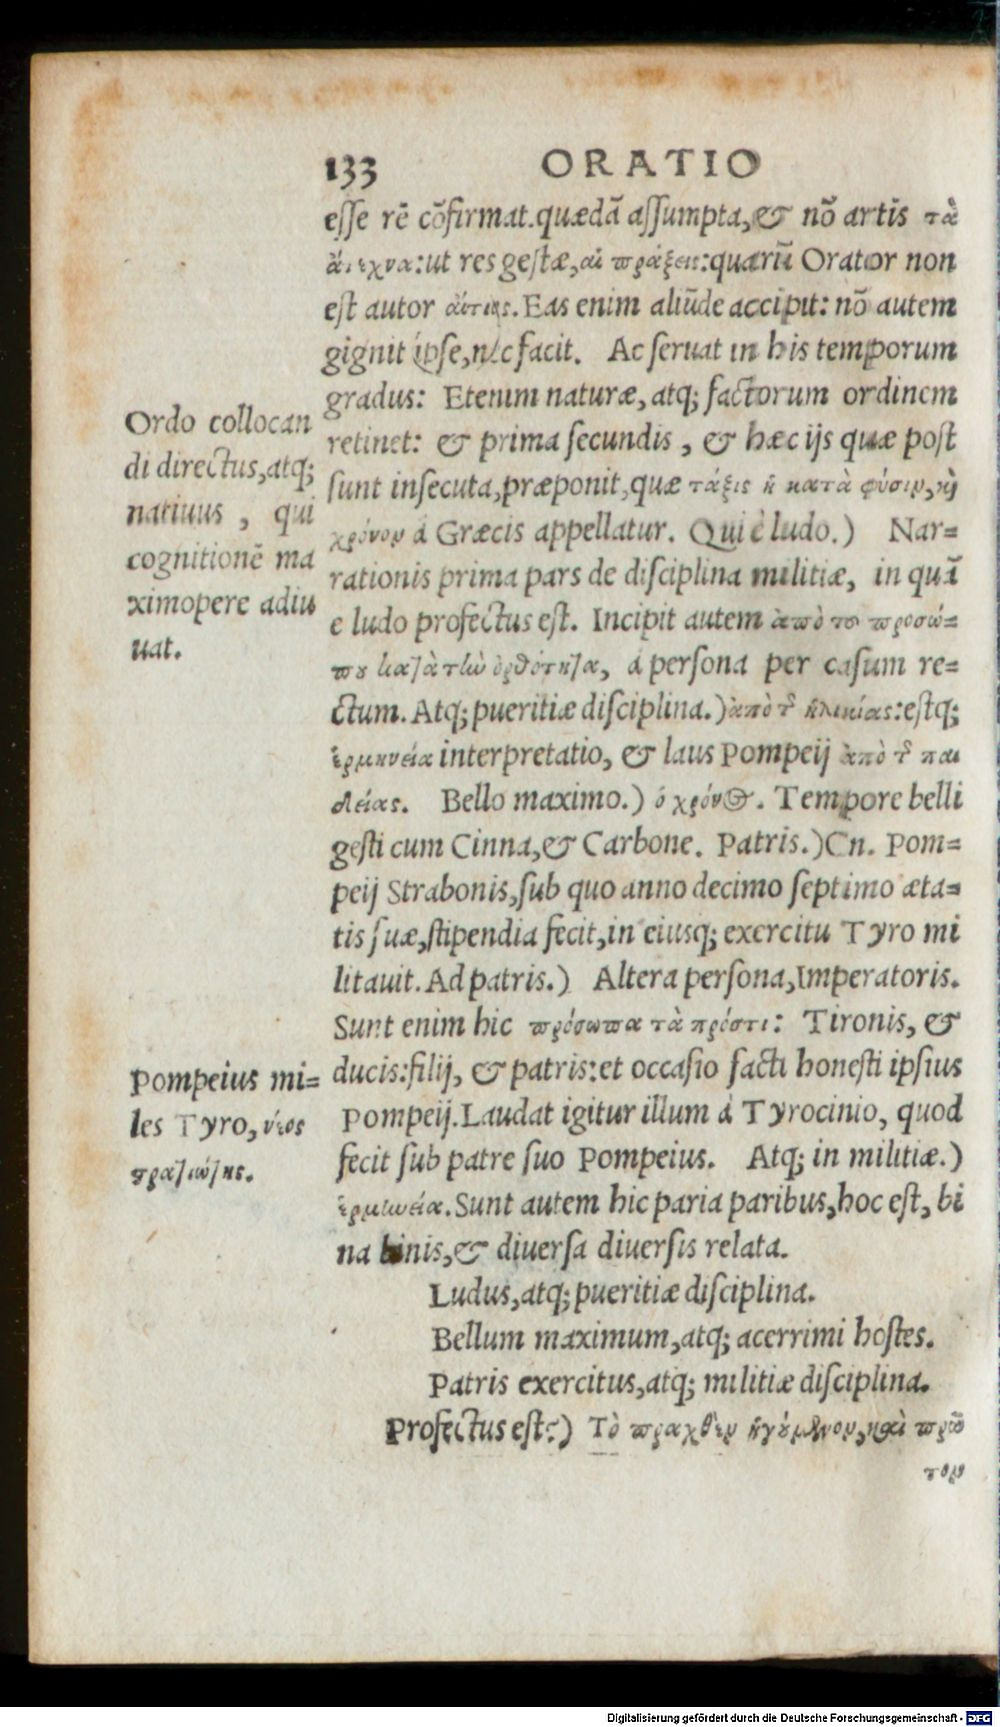 133 ORATIO
esse rē cōfirmat. quædā assumpta, & nō artis τὰ
ἄτεχνα: ut res gestæ, αἱ πράξεις: quarū Orator non
est autor αὔτιος. Eas enim aliūde accipit: nō autem
gignit ipse, nec facit. Ac seruat in his temporum
gradus: Etenim naturæ, atq; factorum ordinem
retinet: & prima secundis, & hæc ijs quæ post
sunt insecuta, præponit, quæ τάξις ἡ κατὰ φύσιν, καὶ
χρόνον à Græcis appellatur. Qui è ludo.) Nar=
rationis prima pars de disciplina militiæ, in quā
e ludo profectus est. Incipit autem ἀπὸ τοῦ προσώ=
που κατὰ τὴν ὀρθότητα, à persona per casum re=
ctum. Atq; pueritiæ disciplina.) ἀπὸ τῆς ἡλικίας: estq;
ἑρμηνεία interpretatio, & laus Pompeij ἀπὸ τῆς παι
δείας. Bello maximo.) ὁ χρόνος. Tempore belli
gesti cum Cinna, & Carbone. Patris.) Cn. Pom=
peij Strabonis, sub quo anno decimo septimo æta=
tis suæ, stipendia fecit, in eiusq; exercitu Tyro mi
litauit. Ad patris.) Altera persona, Imperatoris.
Sunt enim hic πρόσωπα τὰ πρόστι: Tironis, &
ducis: filij, & patris: et occasio facti honesti ipsius
Pompeij. Laudat igitur illum à Tyrocinio, quod
fecit sub patre suo Pompeius. Atq; in militiæ.)
ἑρμηνεία. Sunt autem hic paria paribus, hoc est, bi
na binis, & diuersa diuersis relata.
Ludus, atq; pueritiæ disciplina.
Bellum maximum, atq; acerrimi hostes.
Patris exercitus, atq; militiæ disciplina.
Profectus est:) Τὸ πραχθὲν ἡγούμενον, καὶ πρῶ
τον
Ordo collocan
di directus, atq;
natiuus, qui
cognitionē ma
ximopere adiu
uat.
Pompeius mi=
les Tyro, νέος
στρατιώτης.
Digitalisierung gefördert durch die Deutsche Forschungsgemeinschaft - DFG